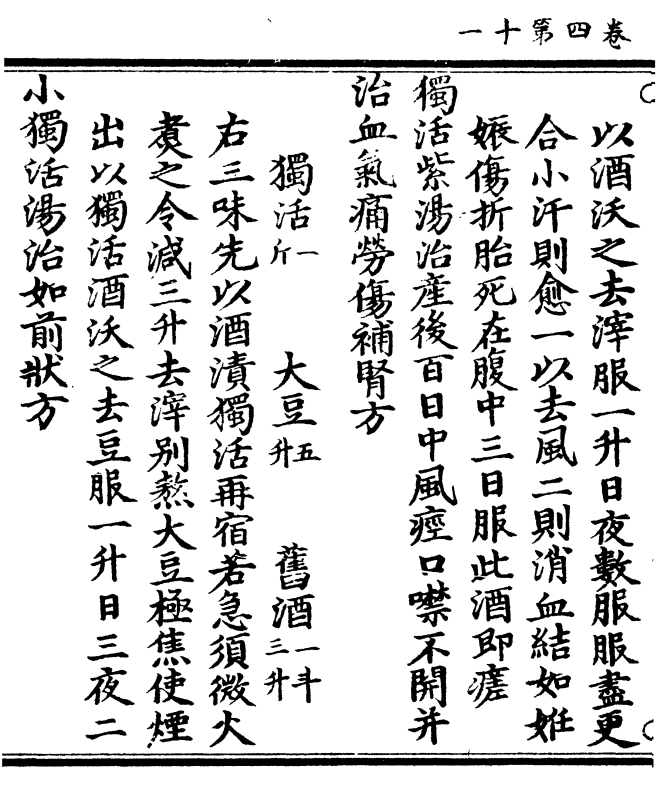 卷四第十一
以酒沃之去滓服一升日夜數服服盡更
合小汗則愈一以去風二則消血結如姙
娠傷折胎死在腹中三日服此酒即瘥
獨活紫湯治產後百日中風痙口噤不開并
治血氣痛勞傷補腎方
獨活一斤 大豆五升 舊酒一斗三升
右三味先以酒漬獨活再宿若急須微火
煑之令減三升去滓别熬大豆極焦使煙
出以獨活酒沃之去豆服一升日三夜二
小獨活湯治如前狀方